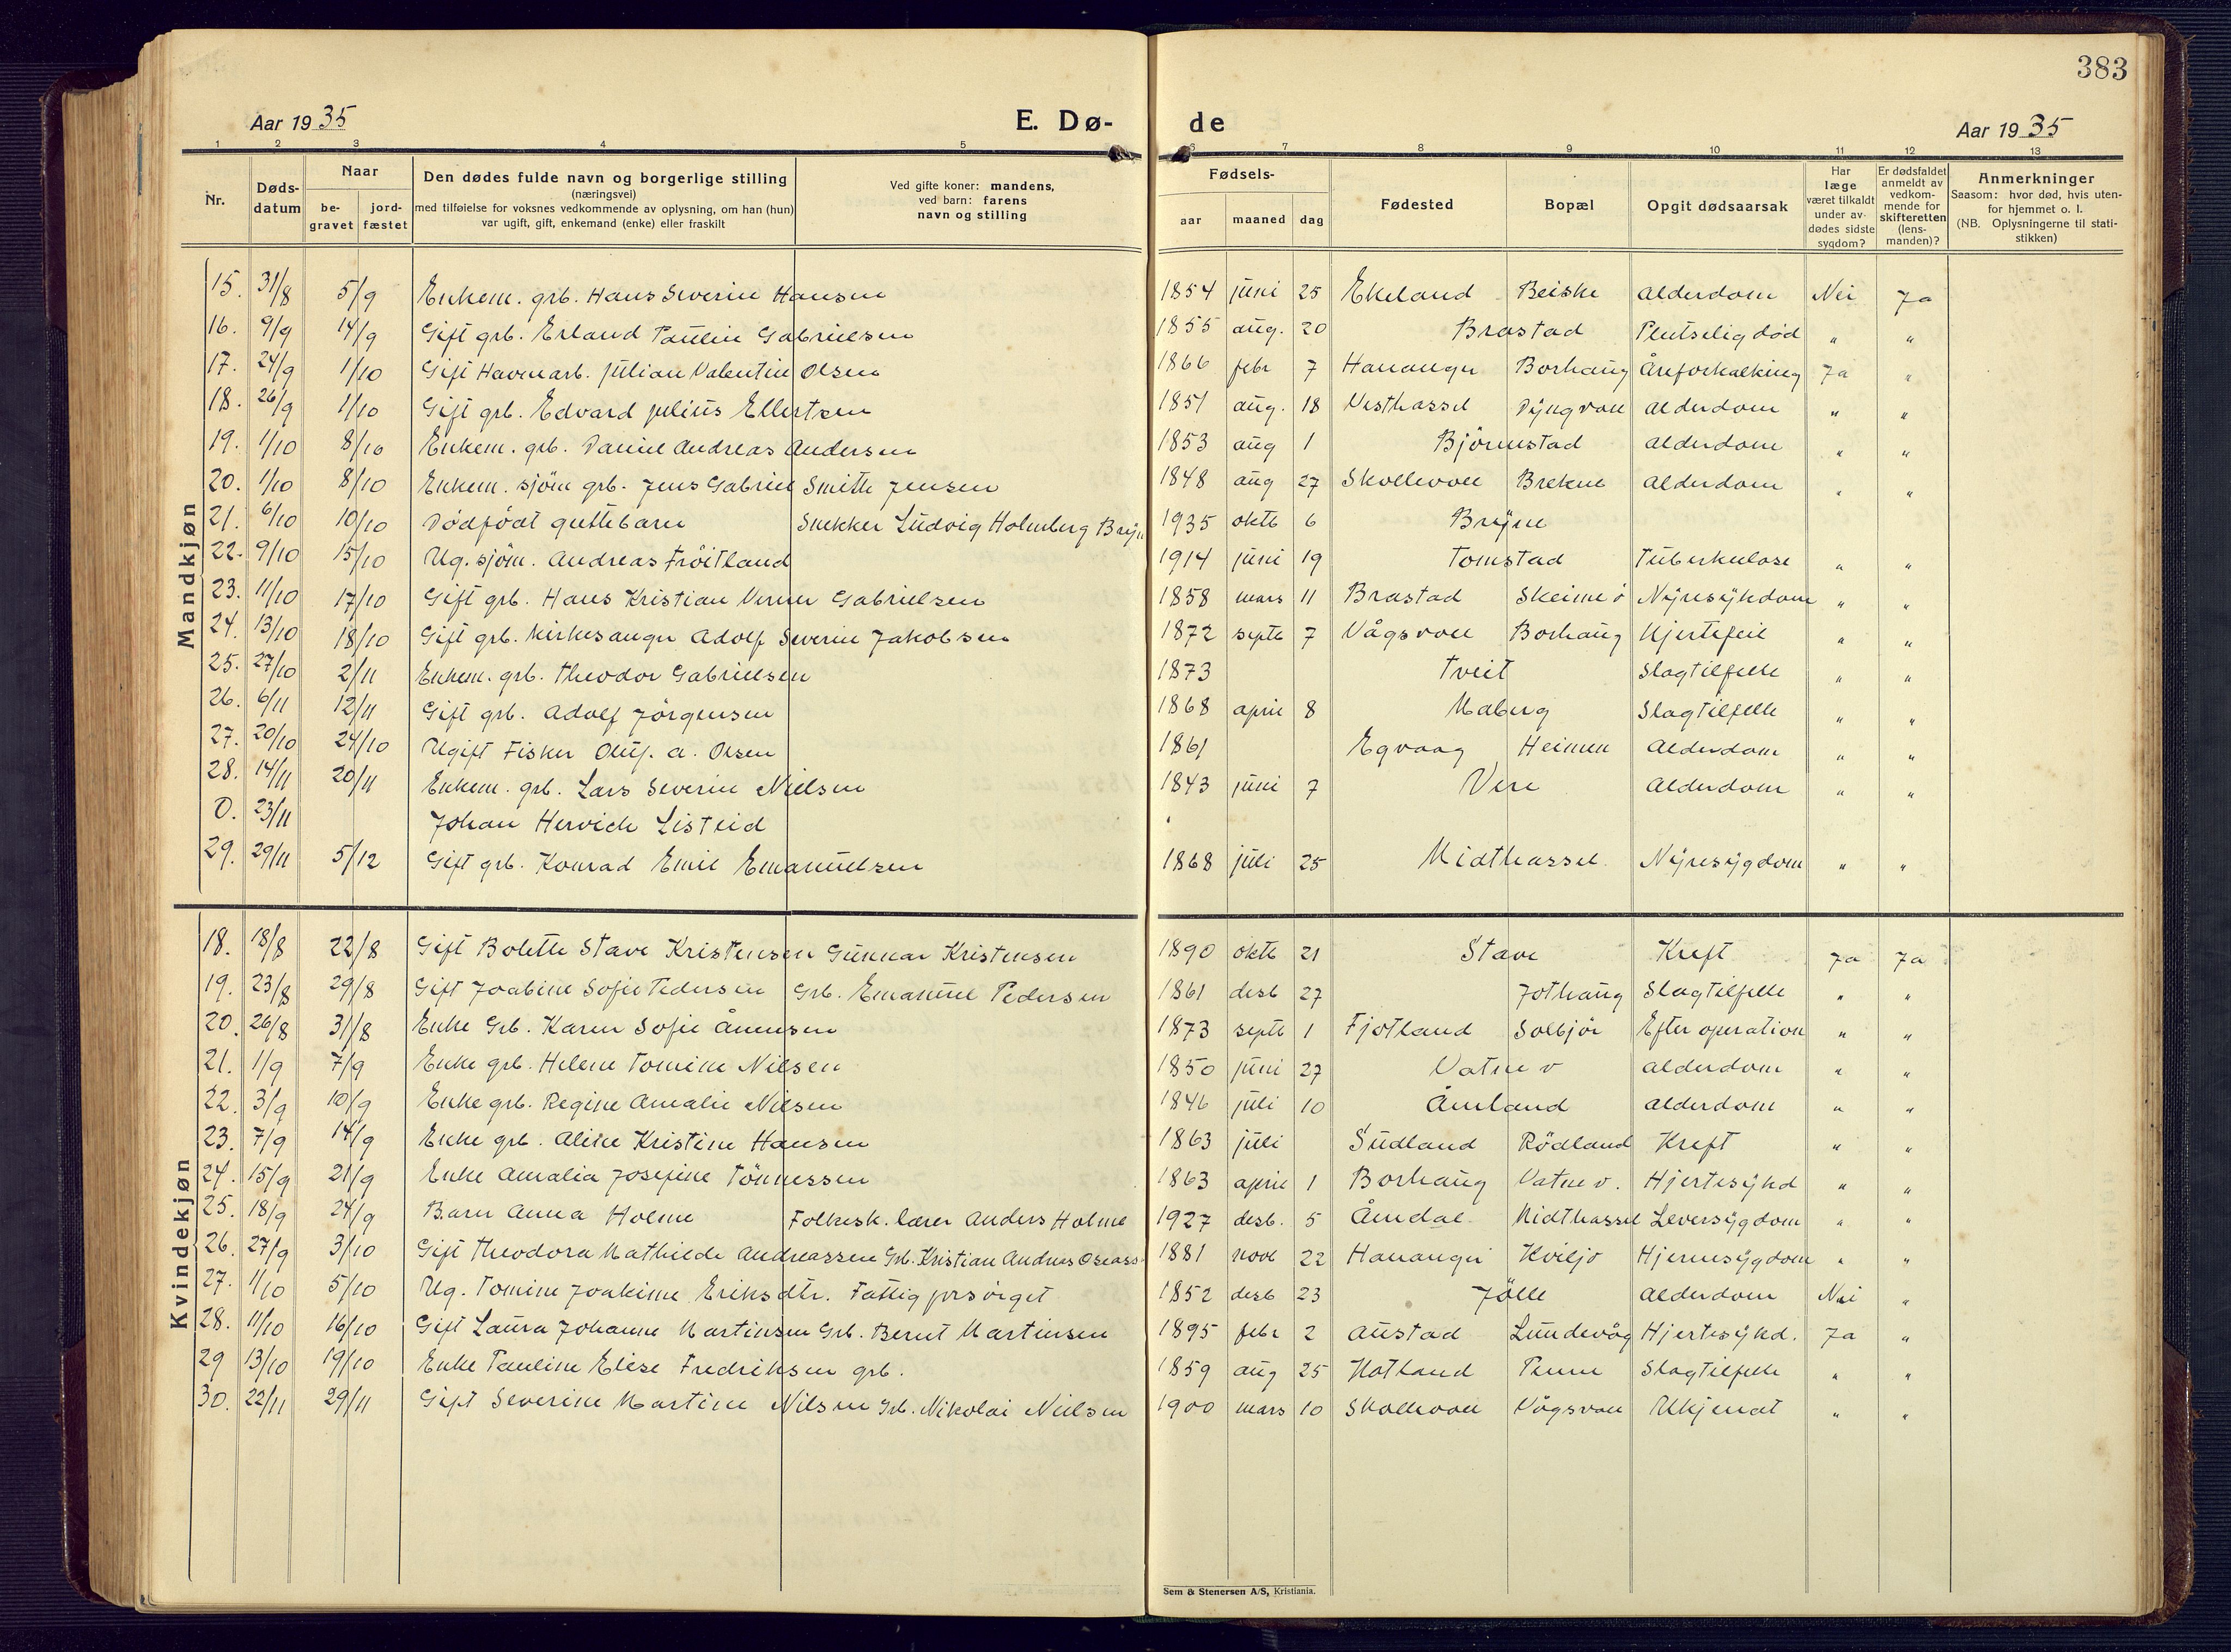 383
Aar 1935 E. Dø- de Aar 1935
1 2 3 4 5 6 7 8 9 10 11 12 13
Nr. Døds-datum Naar begravet jordfæstet Den dødes fulde navn og borgerlige stilling (næringsvei) med tilføielse for voksnes vedkommende av oplysning, om han (hun) var ugift, gift, enkemand (enke) eller fraskilt Ved gifte koner: mandens, ved barn: farens navn og stilling Fødsels- aar maaned dag Fødested Bopæl Opgit dødsaarsak Har læge været tilkaldt under avdødes sidste sygdom? Er dødsfaldet anmeldt av vedkommende for skifteretten (lensmanden)? Anmerkninger Saasom: hvor død, hvis utenfor hjemmet o. l. (NB. Oplysningerne til statistikken)
Mandkjøn
15. 31/8 5/9 Enkem. grb. Hans Severin Hansen 1854 juni 25 Ekeland Beiske Alderdom Nei Ja
16. 9/9 14/9 Gift grb. Erland Paulin Gabrielsen 1855 aug. 20 Brastad Plutselig død " "
17. 24/9 1/10 Gift Havnearb. Julian Valentin Olsen 1866 febr 7 Hanangr Borhaug Åreforkalking Ja "
18. 26/9 1/10 Gift grb. Edvard Julius Ellertsen 1851 aug. 18 Vesthassel Dyngvoll Alderdom " "
19. 1/10 8/10 Enkem. grb. Daniel Andreas Andersen 1853 aug 1 Bjørnestad Alderdom " "
20. 1/10 8/10 Enkem. sjöm grb. Jens Gabriel Smith Jensen 1848 aug 27 Skollevoll Brekne Alderdom " "
21. 6/10 10/10 Dødfödt guttebarn Snekker Ludvig Holmberg Bryn 1935 oktb 6 Bryne
22. 9/10 15/10 Ug. sjöm. Andreas Fröitland 1914 juni 19 Tomstad Tuberkulose " "
23. 11/10 17/10 Gift grb. Hans Kristian Verner Gabrielsen 1858 mars 11 Brastad Skeime ö Nyresykdom " "
24. 13/10 18/10 Gift grb. Kirkesanger Adolf Severin Jakobsen 1872 septb 7 Vågsvoll Borhaug Hjertefeil " "
25. 27/10 2/11 Enkem. grb. Theodor Gabrielsen 1873 Tveit Slagtilfelle " "
26. 6/11 12/11 Gift grb. Adolf Jörgensen 1868 april 8 Maberg Slagtilfelle " "
27. 20/10 24/10 Ugift Fisker Oluf. A. Olsen 1861 Egvaag Heimen Alderdom " "
28. 14/11 20/11 Enkem. grb. Lars Severin Nielsen 1843 juni 7 Vere Alderdom " "
0. 23/11 Johan Hervich Listeid
29. 29/11 5/12 Gift grb. Konrad Emil Emanuelsen 1868 juli 25 Midthassel. Nyresygdom " "
Kvindekjøn
18. 18/8 22/8 Gift Bolette Stave Kristensen Gunnar Kristensen 1890 oktb 21 Stave Kreft Ja Ja
19. 23/8 29/8 Gift Joabine Sofie Pedersen Grb. Emanuel Pedersen 1861 desb 27 Jothaug Slagtilfelle " "
20. 26/8 31/8 Enke Grb. Karen Sofie Ånensen 1873 septb 1 Fjotland Solbjör Efter operation " "
21. 1/9 7/9 Enke grb. Helene Tomine Nilsen 1850 juni 27 Vatne v Alderdom " "
22. 3/9 10/9 Enke grb. Regine Amalie Nilsen 1846 juli 10 Åmland Alderdom " "
23. 7/9 14/9 Enke grb. Aline Kristine Hansen 1863 juli Sudland Rödland Kreft " "
24. 15/9 21/9 Enke Amalia Josefine Tönnessen 1863 april 1 Borhaug Vatne v. Hjertesykd " "
25. 18/9 24/9 Barn Anna Holme Folkesk. lærer Anders Holme 1927 desb. 5 Åmdal Midthassel Leversygdom " "
26. 27/9 3/10 Gift Theodora Mathilde Andreassen Grb. Kristian Andreas Oseass. 1881 novb 22 Hananger Kviljo Hjernesygdom " "
27. 1/10 5/10 Ug. Tomine Joakime Eriksdtr. Fattig forsörget 1852 desb 23 Jölle Alderdom Nei "
28. 11/10 16/10 Gift Laura Johanne Martinsen Grb. Bernt Martinsen 1895 febr 2 Austad Lundevåg Hjertesykd. Ja "
29 13/10 19/10 Enke Pauline Elise Fredriksen grb. 1859 aug 25 Hatland Penne Slagtilfelle " "
30. 22/11 29/11 Gift Severine Martine Nilsen Grb. Nikolai Nielsen 1900 mars 10 Skollevoll Vågsvoll Ukjendt " "
Sem & Stenersen A/S, Kristiania.